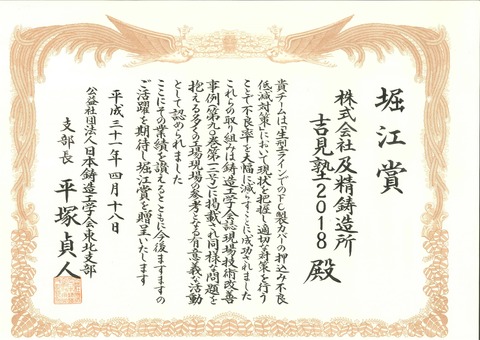 堀江賞
株式会社 及精鋳造所
吉見塾2018 殿
貴チームは「生型主ラインでのFC製カバーの押込み不良
低減対策」において現状を把握し適切な対策を行う
ことで不良率を大幅に減らすことに成功されました
これらの取り組みは鋳造工学会誌現場技術改善
事例(第九〇巻第一二号)に掲載され同様な問題を
抱える多くの工場現場の参考となる有意義な活動
として認められました
ここにその業績を讃えるとともに今後ますますの
ご活躍を期待し堀江賞を贈呈いたします
平成三十一年四月十八日
公益社団法人日本鋳造工学会東北支部
支部長 平塚貞人